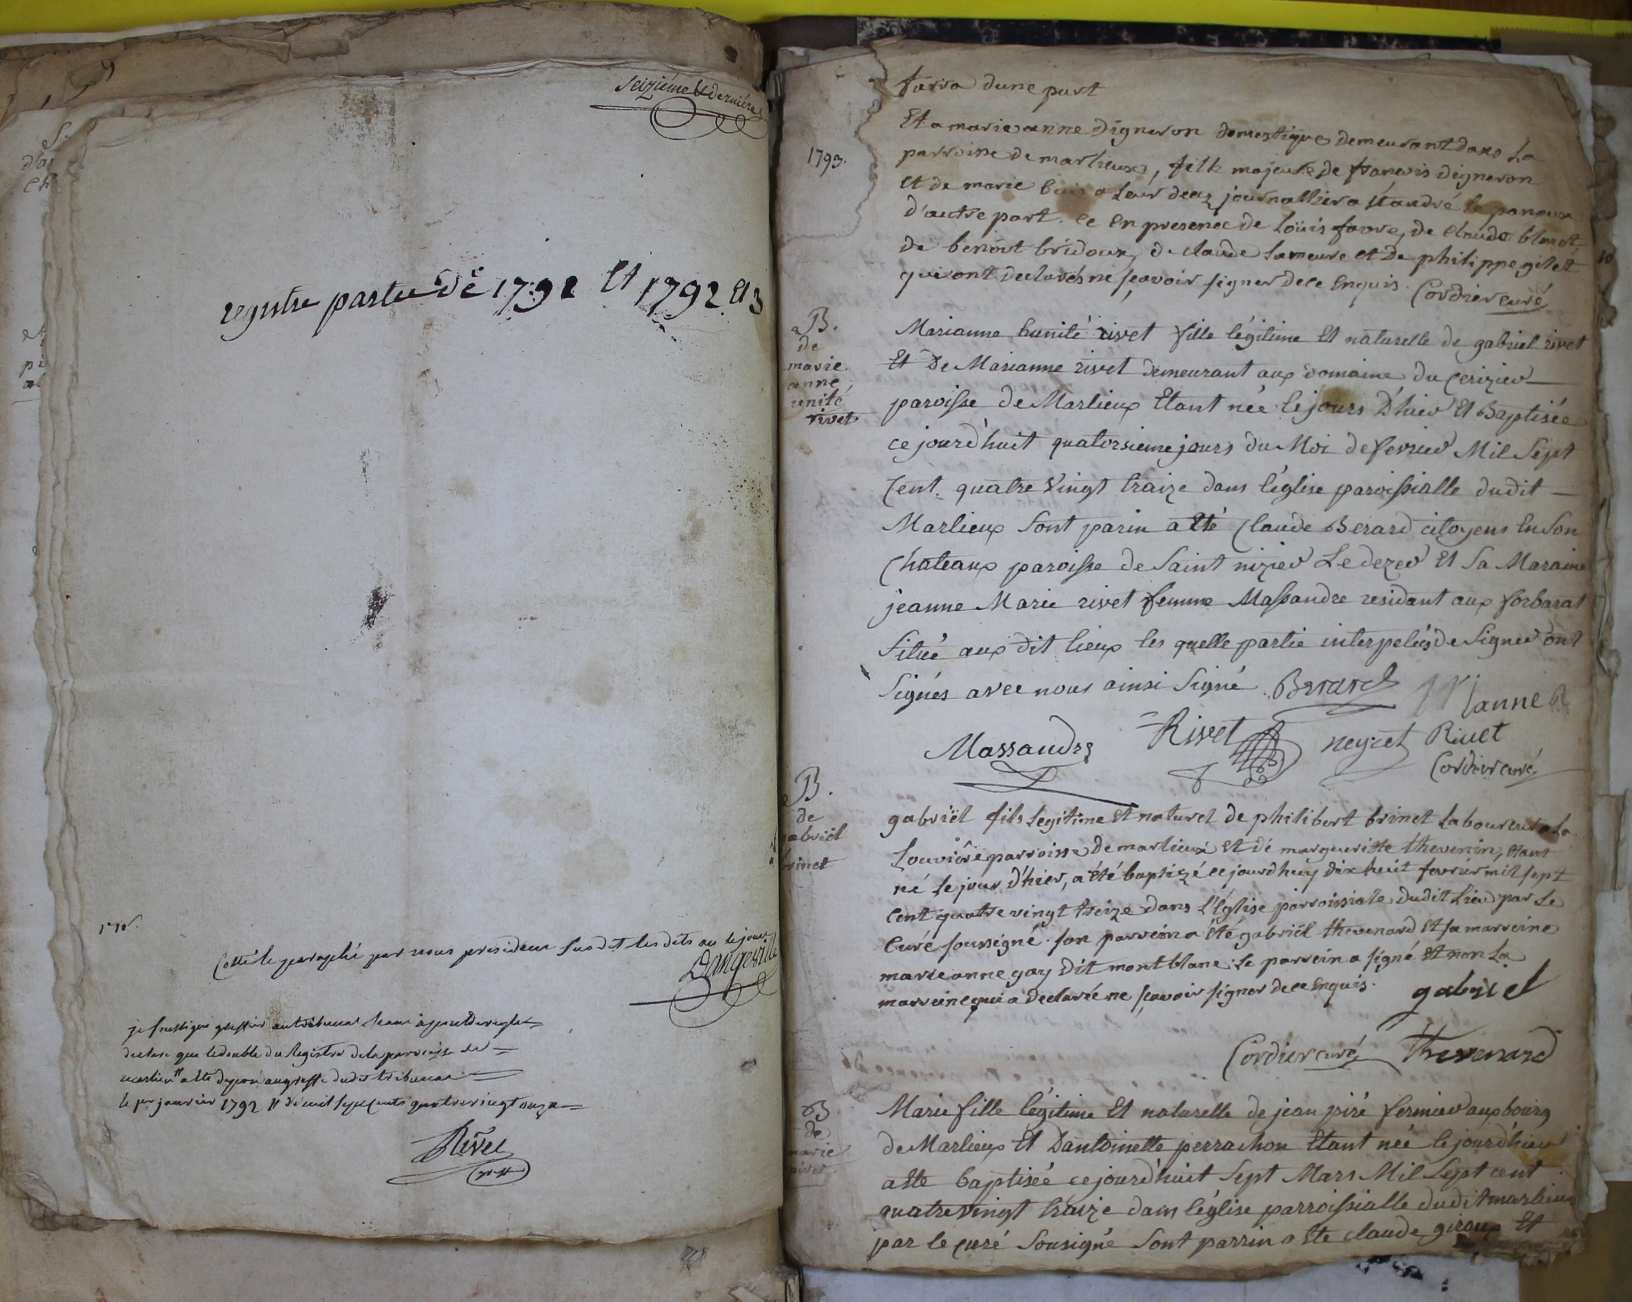 Seizième et dernière
registre partie dè 1792 Et 1792 et 3
Cotté et paraphé par nous president susdit les dits an et jour
Dangeville
je soussigné greffier au tribunal
declare que le double du Registre de la paroisse de
marlieux a été deposé au greffe dudit tribunal
le 1er janvier 1792 mil sept cents quatre vingt onze
Rivet
1793.
favre dune part
Et a marie anne digneron domestique demeurant dans la
parroisse de marlieux, fille majeure de francois digneron
Et de marie buis a leur deux journalliers a st andré le panoux
d'autre part. ce En presence de Loüis favre, de claude blanot
de benoit bridoux, de claude lameure et de philippe gilet
qui ont declarés ne sçavoir signer de ce Enquis. Cordier curé
B.
de
marie
anne
unité
rivet
Marianne l'unité rivet fille légitime Et naturelle de gabriel rivet
Et De Marianne rivet demeurant aux domaine du Cerizier
paroisse de Marlieux Etant née le jours D'hier Et Baptisée
ce jourd'huit quatorsieme jours du Moi de fevrier Mil Sept
Cent quatre Vingt traize dans l'église paroissialle dudit
Marlieux Sont parin a Eté Claude Berard citoyens En Son
Chateaux paroisse de Saint nizier Le dezer Et Sa Maraine
jeanne Marie rivet femme Massandre residant aux forbarat
Situé aux dit lieux les quelle partie interpelés de Signer ont
Signés avec nous ainsi Signé Berard
Manne R
Massandre Rivet neyret Rivet
Cordier curé
B.
de
gabriël
brinet
gabriël fils Legitime Et naturel de philibert brinet Laboureur a La
Louvière parroisse de marlieux Et de margueritte thevenin, étant
né Le jour D'hier, a été baptizé ce jourd'huy dix huit fevrier mil sept
cent quatre vingt treize dans l'Eglise parroissiale dudit Lieu par Le
Curé soussigné. son parrein a Eté gabriël thevenard et sa marreine
marie anne gay dit mont blanc. Le parrein a signé Et non La
marreine qui a declaré ne sçavoir signer de ce Enquis.
gabriel
Cordier curé Thevenard
B
de
marie
piré
Marie fille légitime Et naturelle de jean piré fermier aux bourg
de Marlieux Et Dantoinette perrachon Etant née le jourd'hier
a Eté baptisée ce jourd'huit Sept Mars Mil Sept cent
quatre vingt traize dans l'église parroissialle dudit marlieux
par le curé Sousigné Sont parrin a Eté claude giroux Et